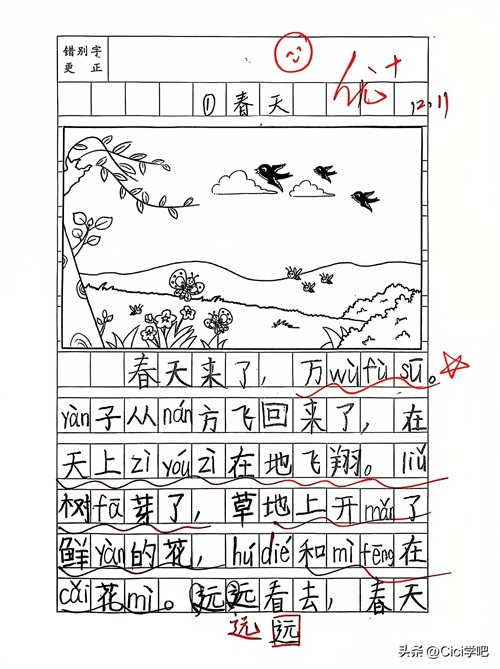 错别字
更正
优+
①春天
12.11
春天来了，万wùfùsū。
yàn子从nán方飞回来了，在
天上zìyóuzì在地飞翔。liǔ
树fā芽了，草地上开mǎn了
鲜yàn的花，húdié和mìfēng在
cǎi花mì。远远看去，春天
远远
头条 @Cici学吧